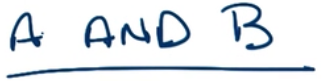 A AND B